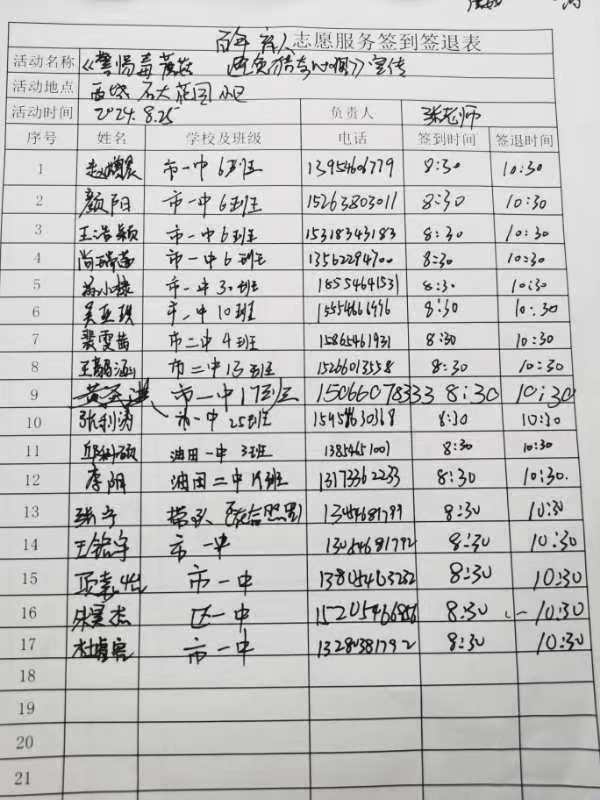 志愿服务签到签退表
活动名称 《警惕毒蘑菇 》宣传
活动地点 石大花园小区
活动时间 2024.8.25 负责人 张老师
序号 姓名 学校及班级 电话 签到时间 签退时间
1 市一中6班 13954606779 8:30 10:30
2 颜阳 市一中6班 15263803011 8:30 10:30
3 王浩颖 市一中6班 15318343183 8:30 10:30
4 尚瑞莲 市一中6班 13562294700 8:30 10:30
5 市一中30班 18554641531 8:30 10:30
6 吴亚轶 市一中10班 15554666996 8:30 10:30
7 裴雯茜 市二中4班 15865461931 8:30 10:30
8 王韶涵 市二中13班 15266013558 8:30 10:30
9 市一中17班 15066078333 8:30 10:30
10 张利涛 市一中25班 8:30 10:30
11 油田一中3班 13854651001 8:30 10:30
12 李阳 油田二中 班 13173362233 8:30 10:30.
13 张宁 8:30 10:30
14 王铭宇 市一中 13054681792 8:30 10:30
15 市一中 13805463232 8:30 10:30
16 朱昊杰 区一中 8:30 10:30
17 市一中 13280381792 8:30 10:30
18
19
20
21